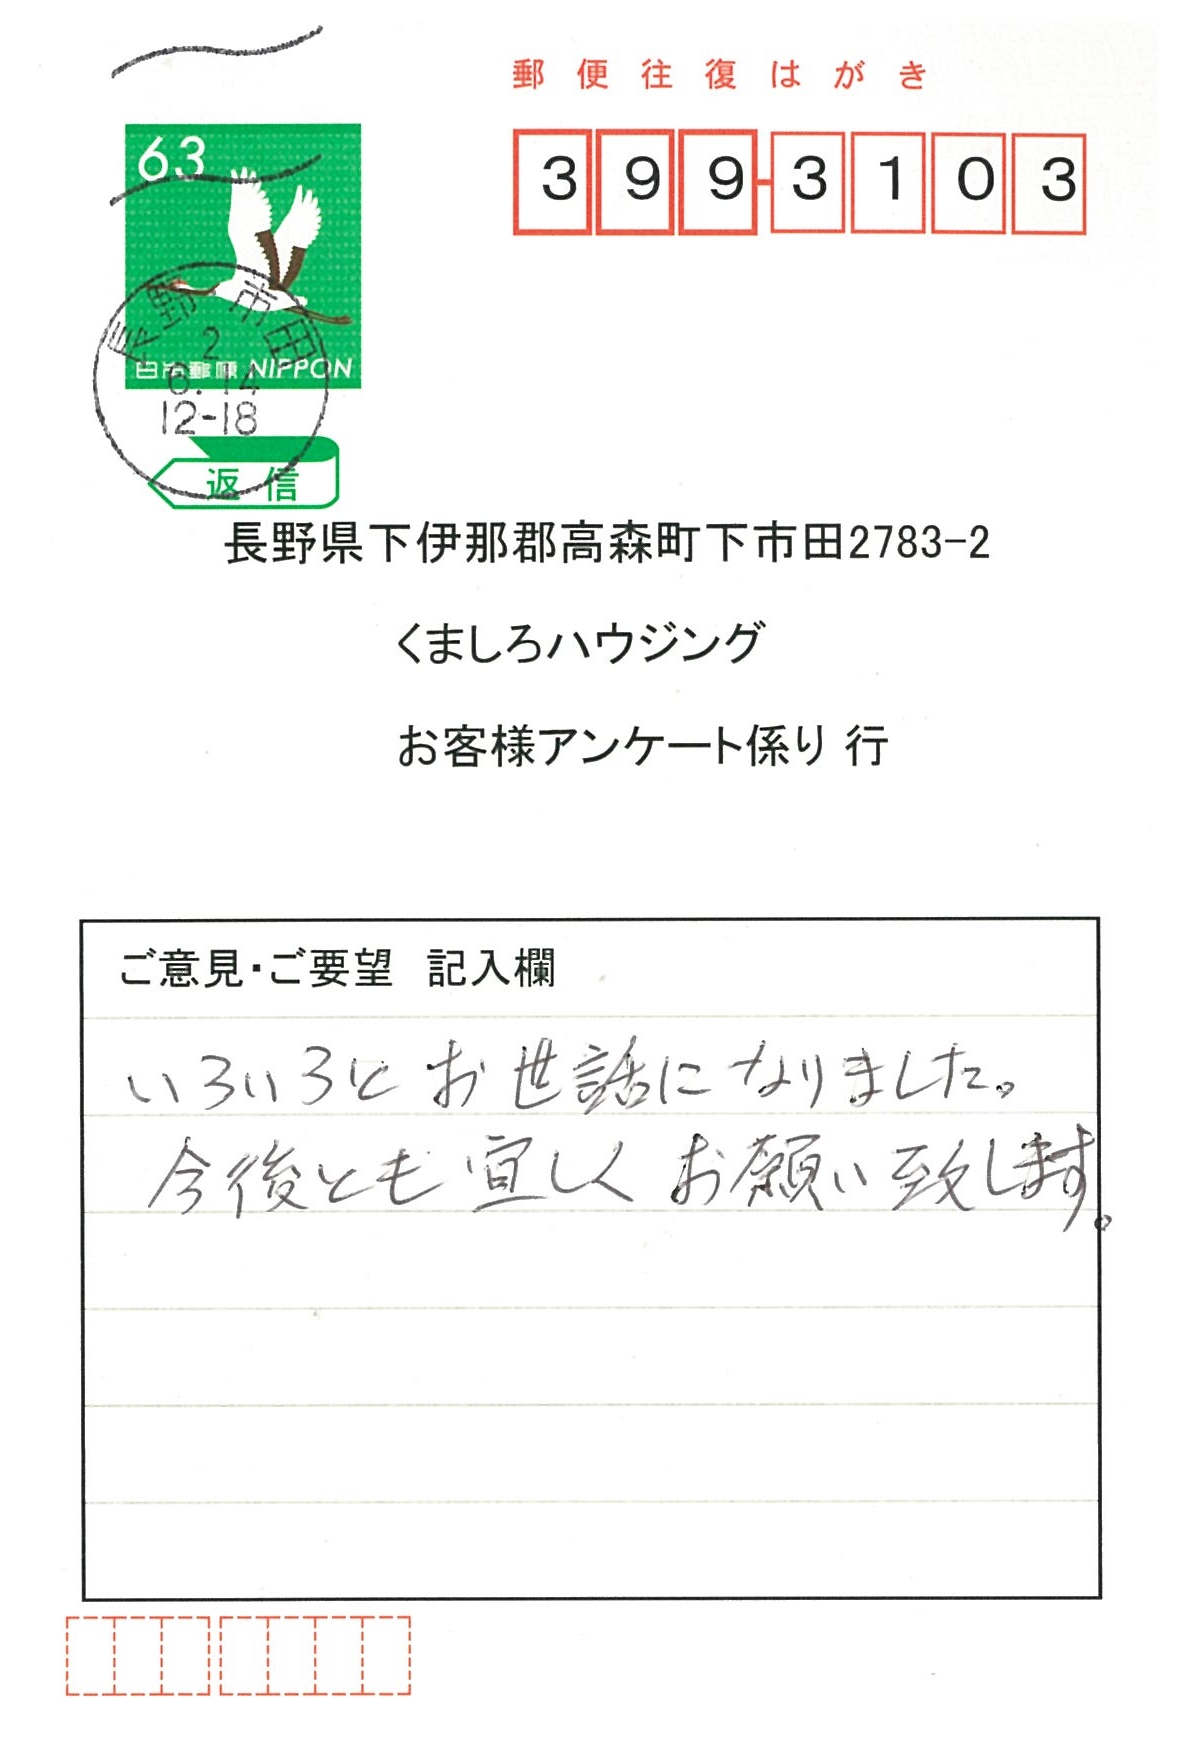 郵便往復はがき
63
399-3103
長野 市田
2
6.14
12-18
日本郵便 NIPPON
返信
長野県下伊那郡高森町下市田2783-2
くましろハウジング
お客様アンケート係り 行
ご意見・ご要望 記入欄
いろいろとお世話になりました。
今後とも宜しくお願い致します。